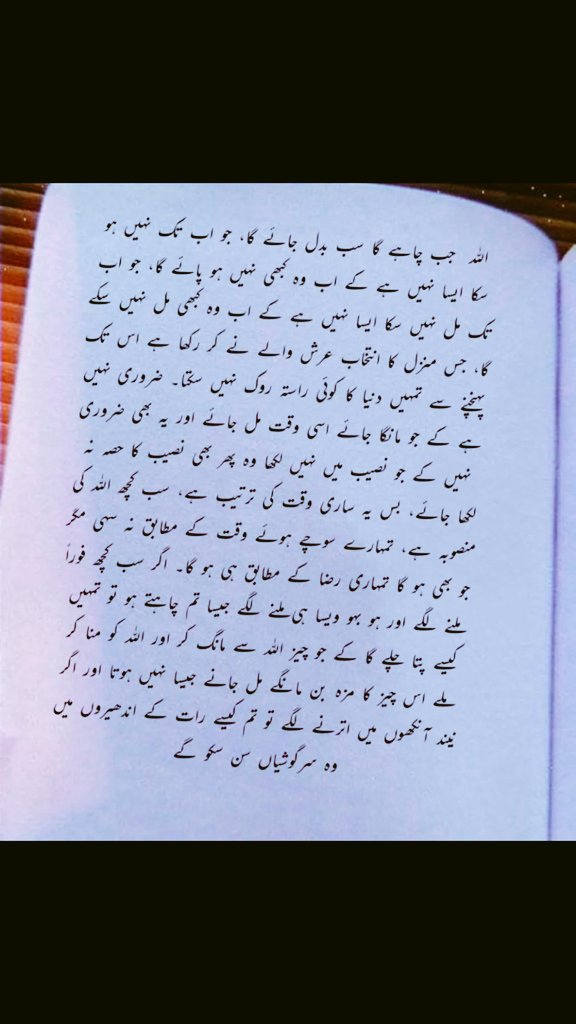 اللہ جب چاہے گا سب بدل جائے گا، جو اب تک نہیں ہو
سکا ایسا نہیں ہے کے اب وہ کبھی نہیں ہو پائے گا، جو اب
تک مل نہیں سکا ایسا نہیں ہے کے اب وہ کبھی مل نہیں سکے
گا، جس منزل کا انتخاب عرش والے نے کر رکھا ہے اس تک
پہنچنے سے تمہیں دنیا کا کوئی راستہ روک نہیں سکتا۔ ضروری نہیں
ہے کے جو مانگا جائے اسی وقت مل جائے اور یہ بھی ضروری
نہیں کے جو نصیب میں نہیں لکھا وہ پھر بھی نصیب کا حصہ نہ
لکھا جائے، بس یہ ساری وقت کی ترتیب ہے، سب کچھ اللہ کی
منصوبہ ہے، تمہارے سوچے ہوئے وقت کے مطابق نہ سہی مگر
جو بھی ہو گا تمہاری رضا کے مطابق ہی ہو گا۔ اگر سب کچھ فوراً
ملنے لگے اور ہو بہو ویسا ہی ملنے لگے جیسا تم چاہتے ہو تو تمہیں
کیسے پتا چلے گا کے جو چیز اللہ سے مانگ کر اور اللہ کو منا کر
ملے اس چیز کا مزہ بن مانگے مل جانے جیسا نہیں ہوتا اور اگر
نیند آنکھوں میں اترنے لگے تو تم کیسے رات کے اندھیروں میں
وہ سرگوشیاں سن سکو گے